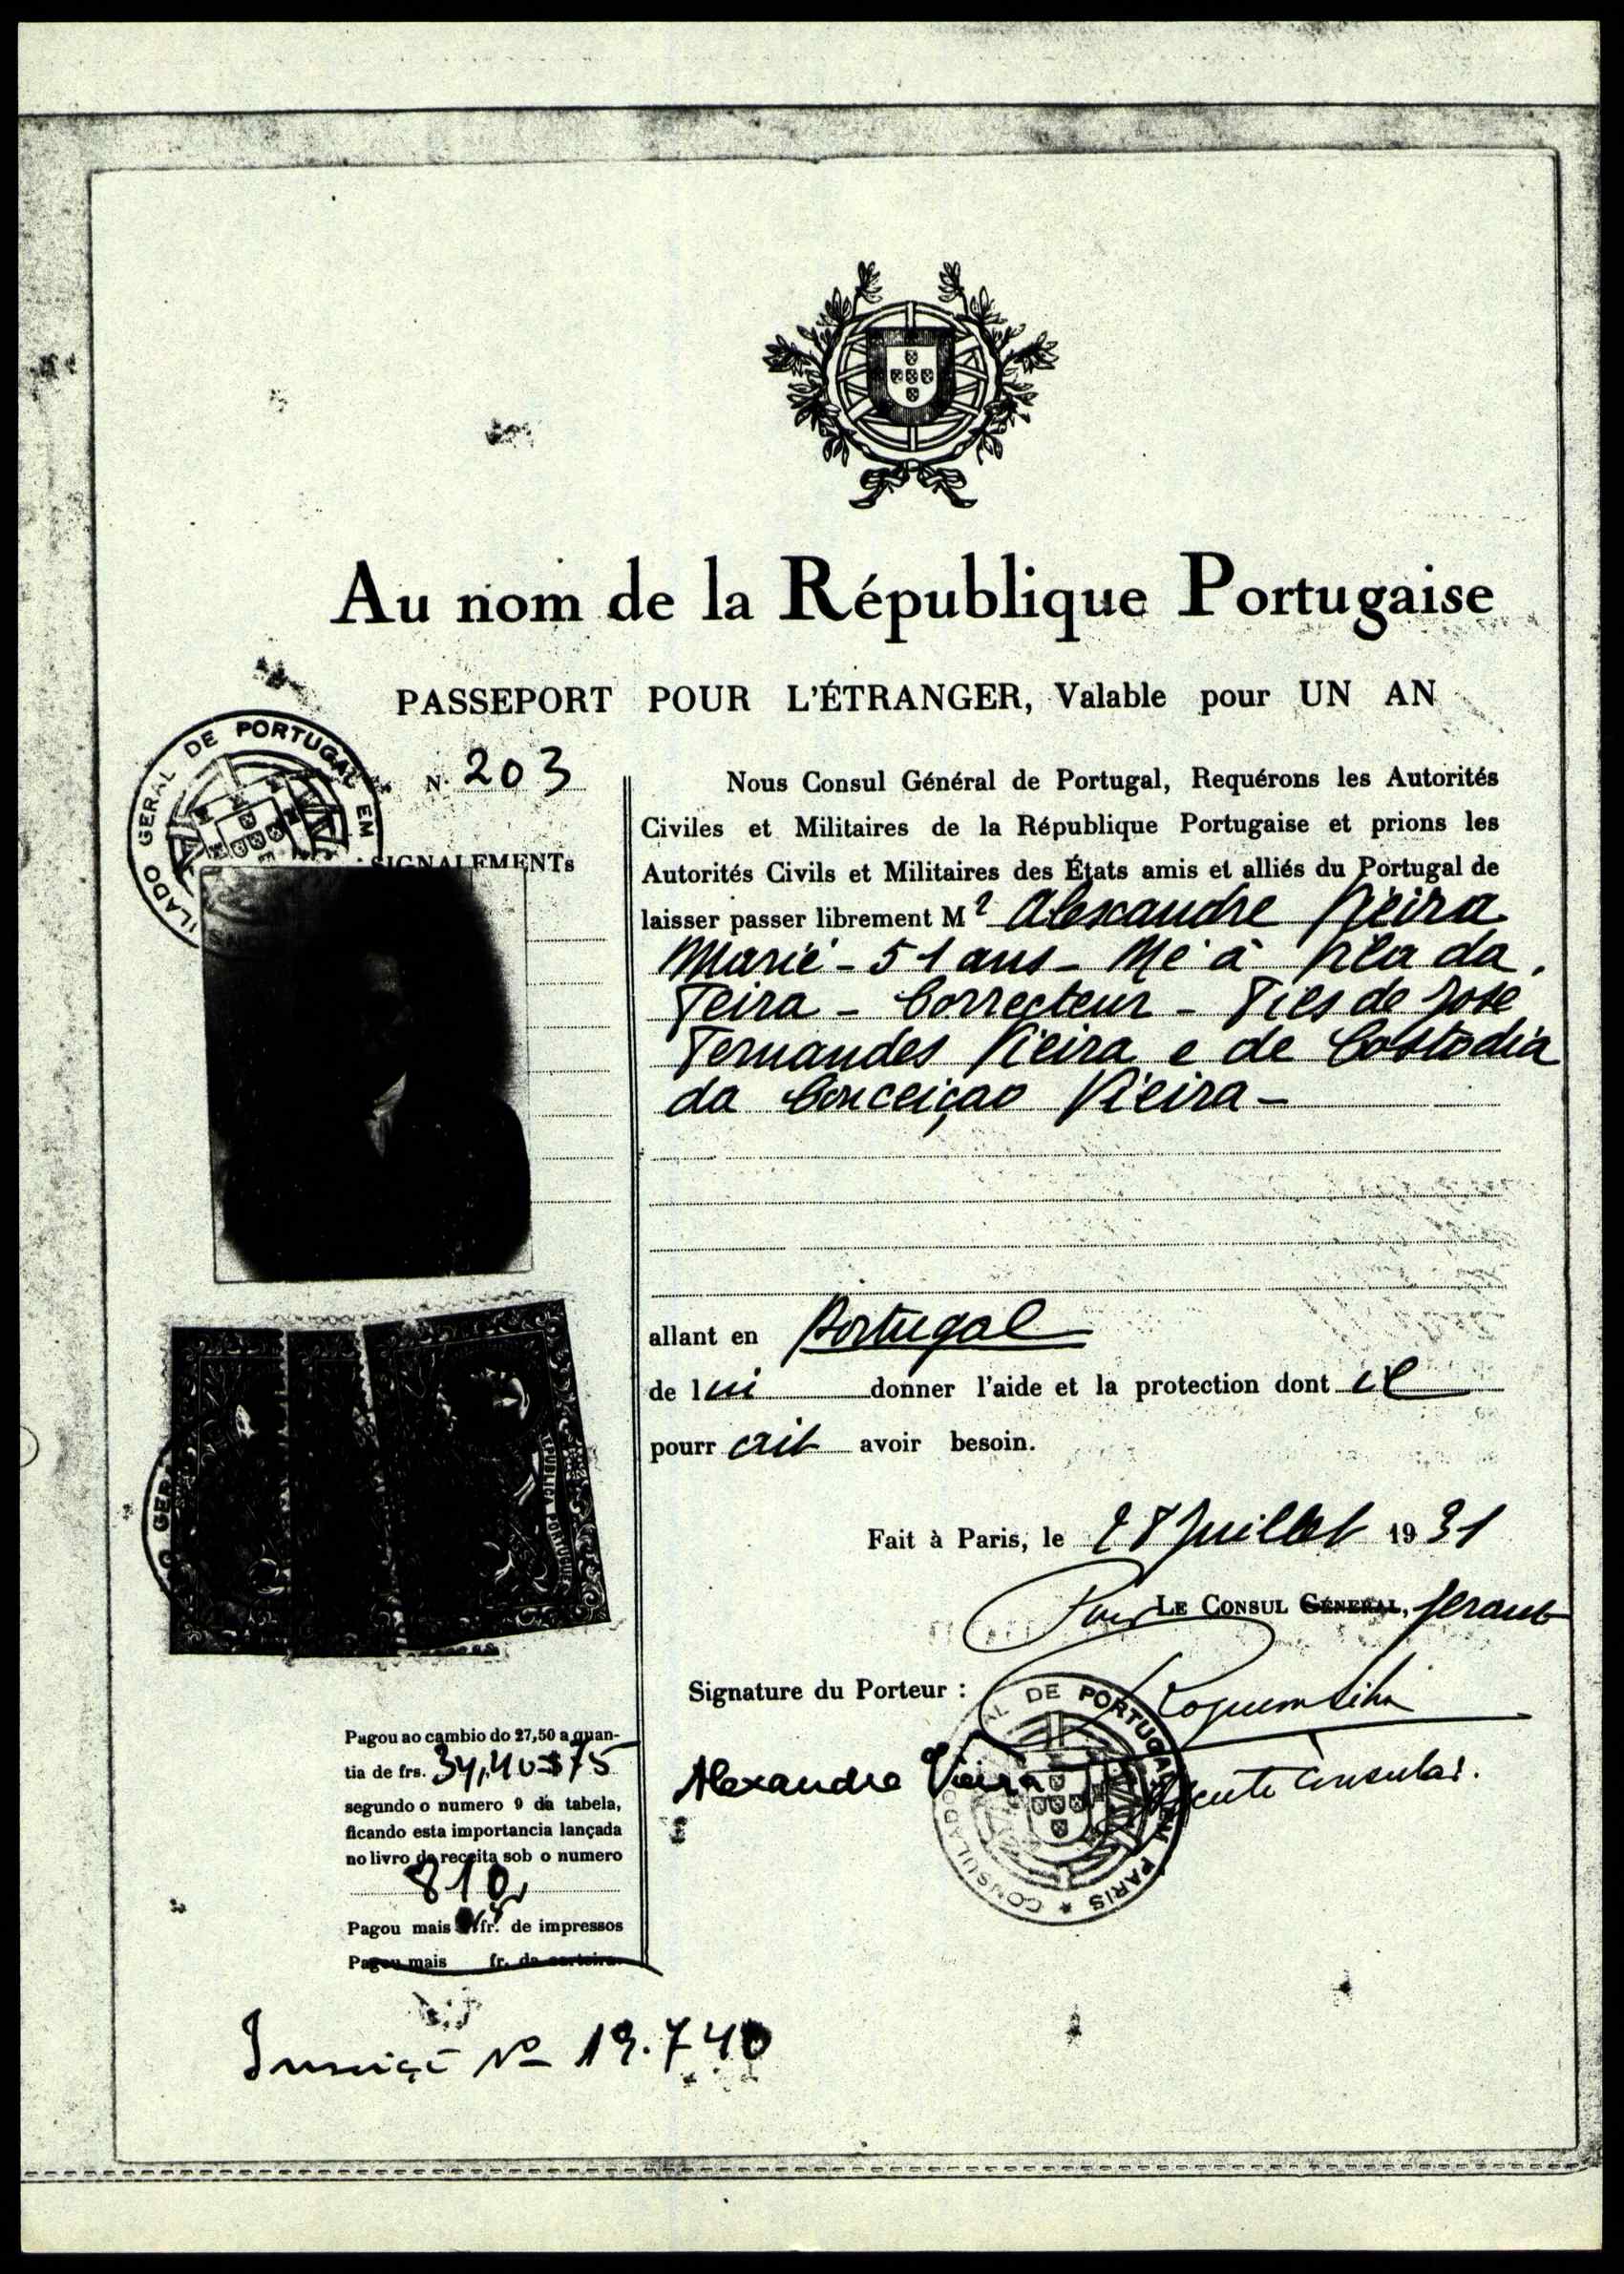 Au nom de la République Portugaise
PASSEPORT POUR L'ÉTRANGER, Valable pour UN AN
GERAL DE PORTUGAL EM
N. 203
SIGNALEMENTs
Nous Consul Général de Portugal, Requérons les Autorités
Civiles et Militaires de la République Portugaise et prions les
Autorités Civils et Militaires des États amis et alliés du Portugal de
laisser passer librement Mr Alexandre Vieira
Marié - 51 ans - Né à Vila da
Feira - Correcteur - Fils de José
Fernandes Vieira e de Costodia
da Conceiçao Vieira -
allant en Portugal
de lui donner l'aide et la protection dont il
pourr ait avoir besoin.
Fait à Paris, le 28 Juillet 1931
Pour LE CONSUL GÉNÉRAL, gerant
Signature du Porteur :
Alexandre Vieira
Consular.
CONSULADO GERAL DE PORTUGAL EM PARIS
REPUBLICA PORTUGUESA
Pagou ao cambio do 27,50 a quan-
tia de frs. 34,40 $75
segundo o numero 9 da tabela,
ficando esta importancia lançada
no livro de receita sob o numero
810
Pagou mais fr. de impressos
Pagou mais fr. da carteira.
Nº 19.740